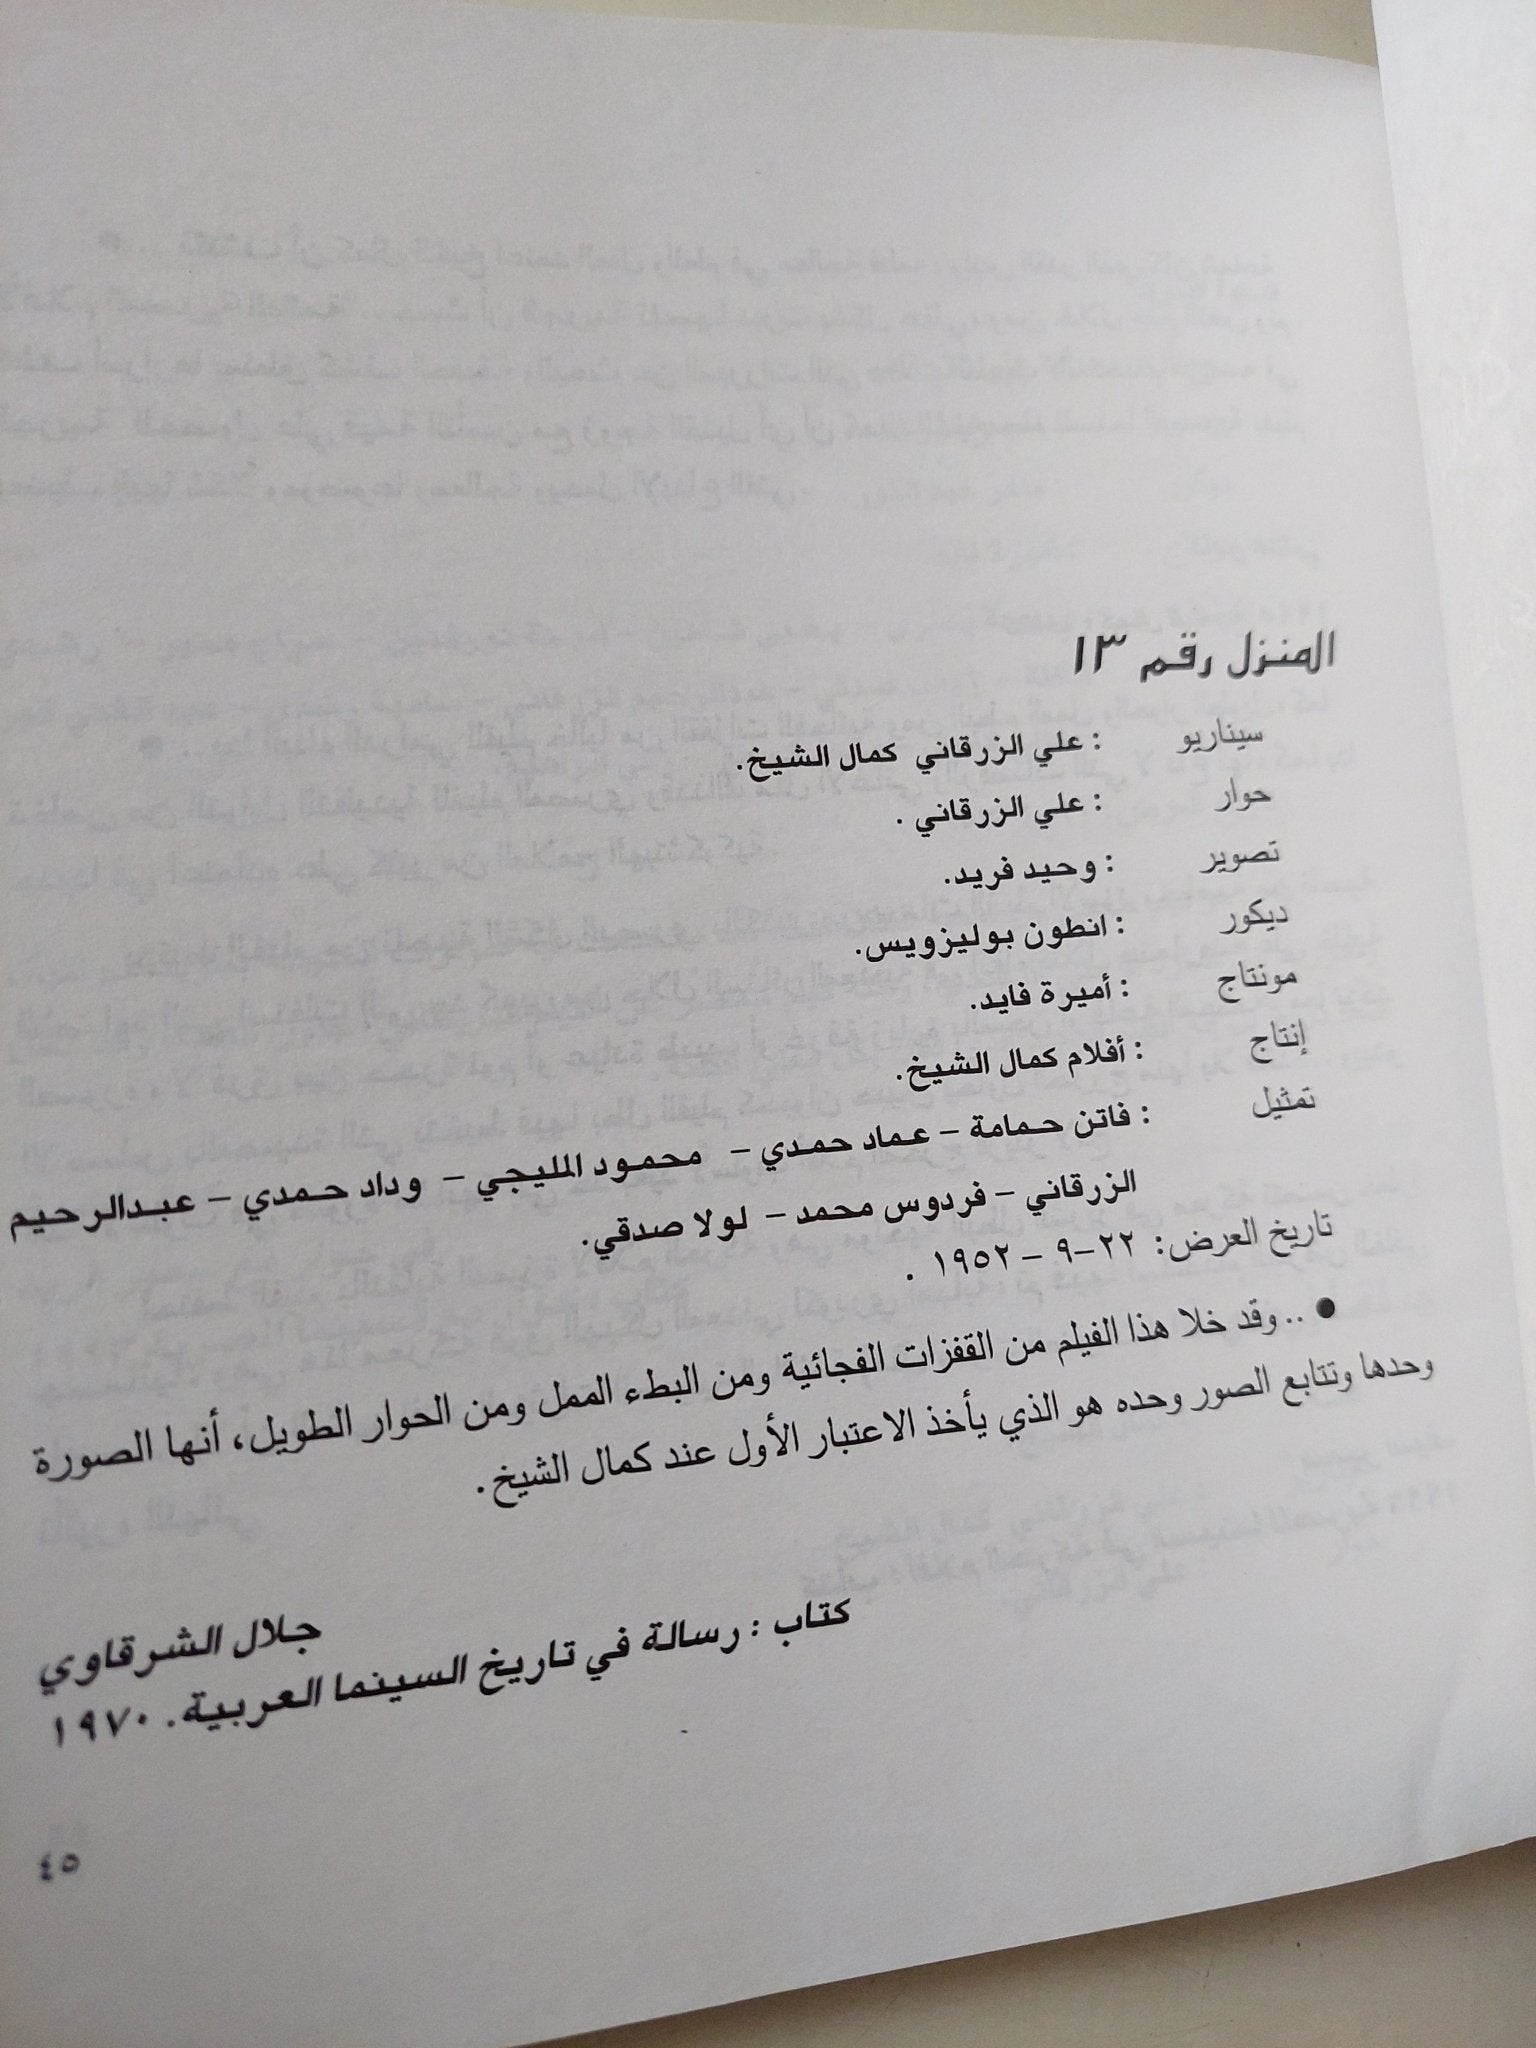 المنزل رقم ١٣
سيناريو : علي الزرقاني كمال الشيخ.
حوار : علي الزرقاني .
تصوير : وحيد فريد.
ديكور : انطون بوليزويس.
مونتاج : أميرة فايد.
إنتاج : أفلام كمال الشيخ.
تمثيل : فاتن حمامة - عماد حمدي - محمود المليجي - وداد حمدي - عبدالرحيم
الزرقاني - فردوس محمد - لولا صدقي.
تاريخ العرض: ٢٢-٩ - ١٩٥٢ .
● .. وقد خلا هذا الفيلم من القفزات الفجائية ومن البطء الممل ومن الحوار الطويل، أنها الصورة
وحدها وتتابع الصور وحده هو الذي يأخذ الاعتبار الأول عند كمال الشيخ.
جلال الشرقاوي
كتاب : رسالة في تاريخ السينما العربية. ١٩٧٠
٤٥